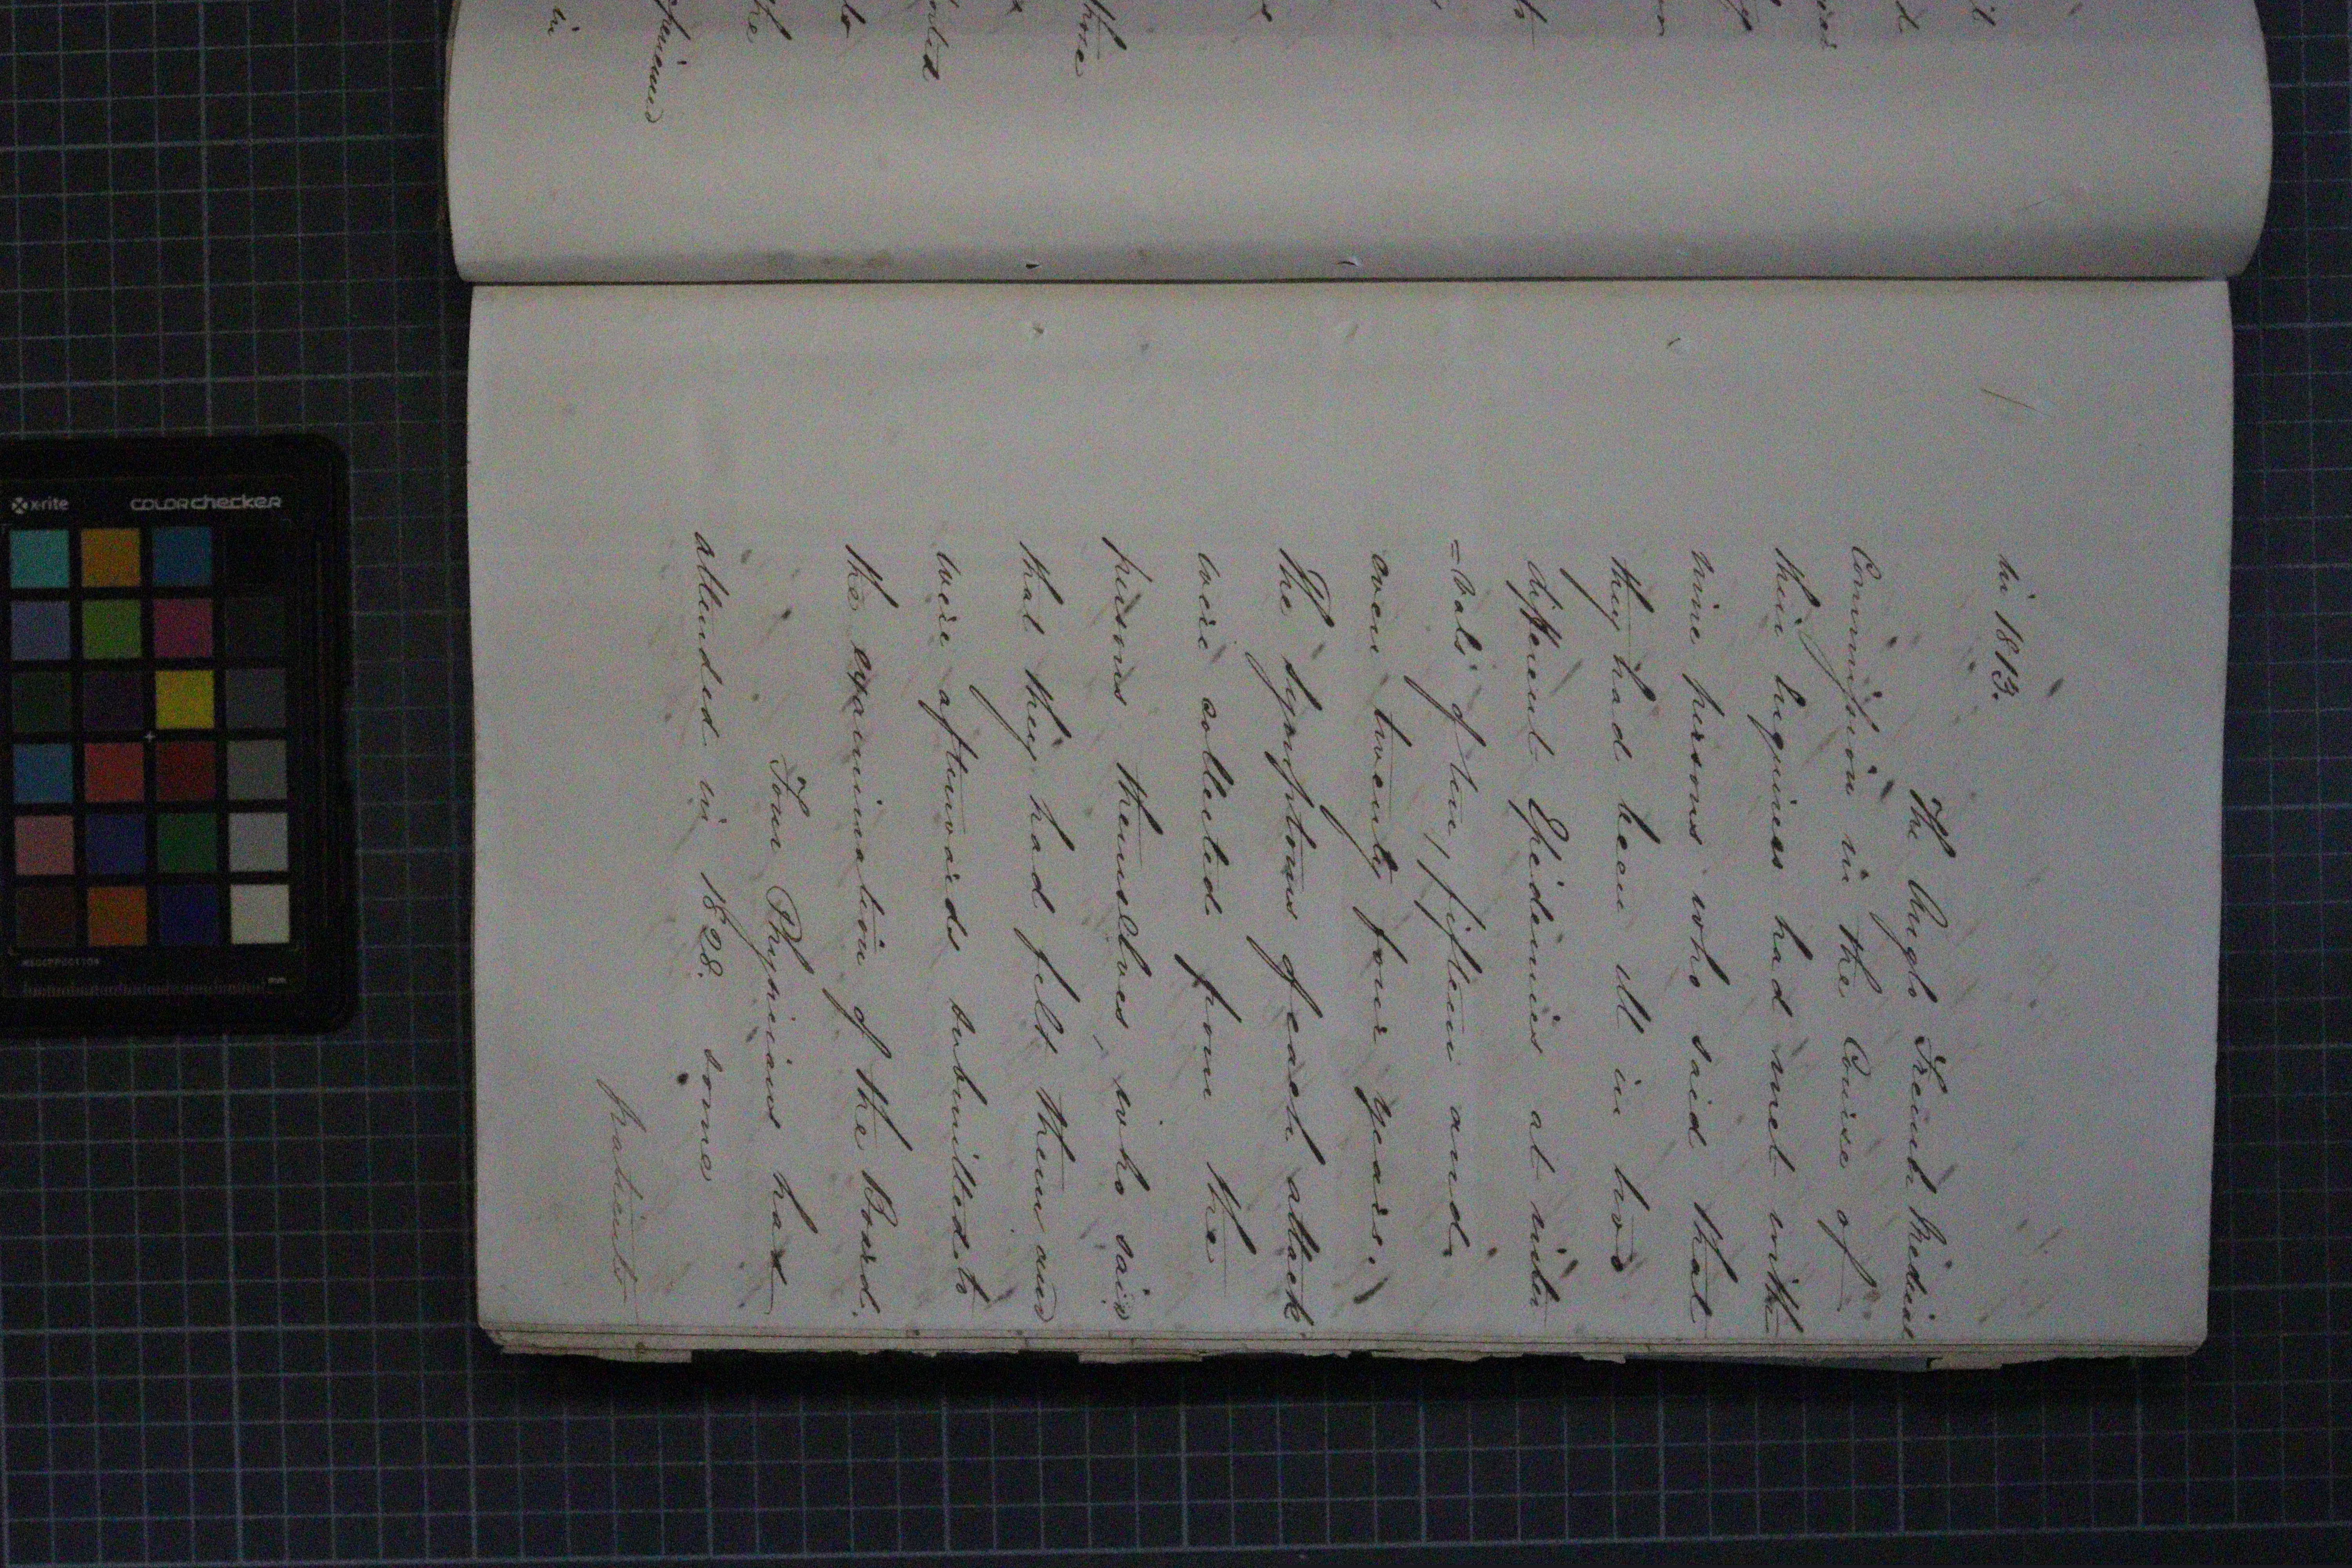 in 1813.
The Anglo French Medical
Commission in the Course of
their Inquiries had met with
nine persons who said that
they had been ill in two
different Epidemics at inter
=vals of ten, fifteen and
even twenty four years.
The symptoms of each attack
were collected from the
persons themselves, who said
that they had felt them and
were afterwards submitted to
the examination of the Board.
Four Physicians had
attended in 1828. some
patients
those
the
to
in
x-rite
colorchecker
mm